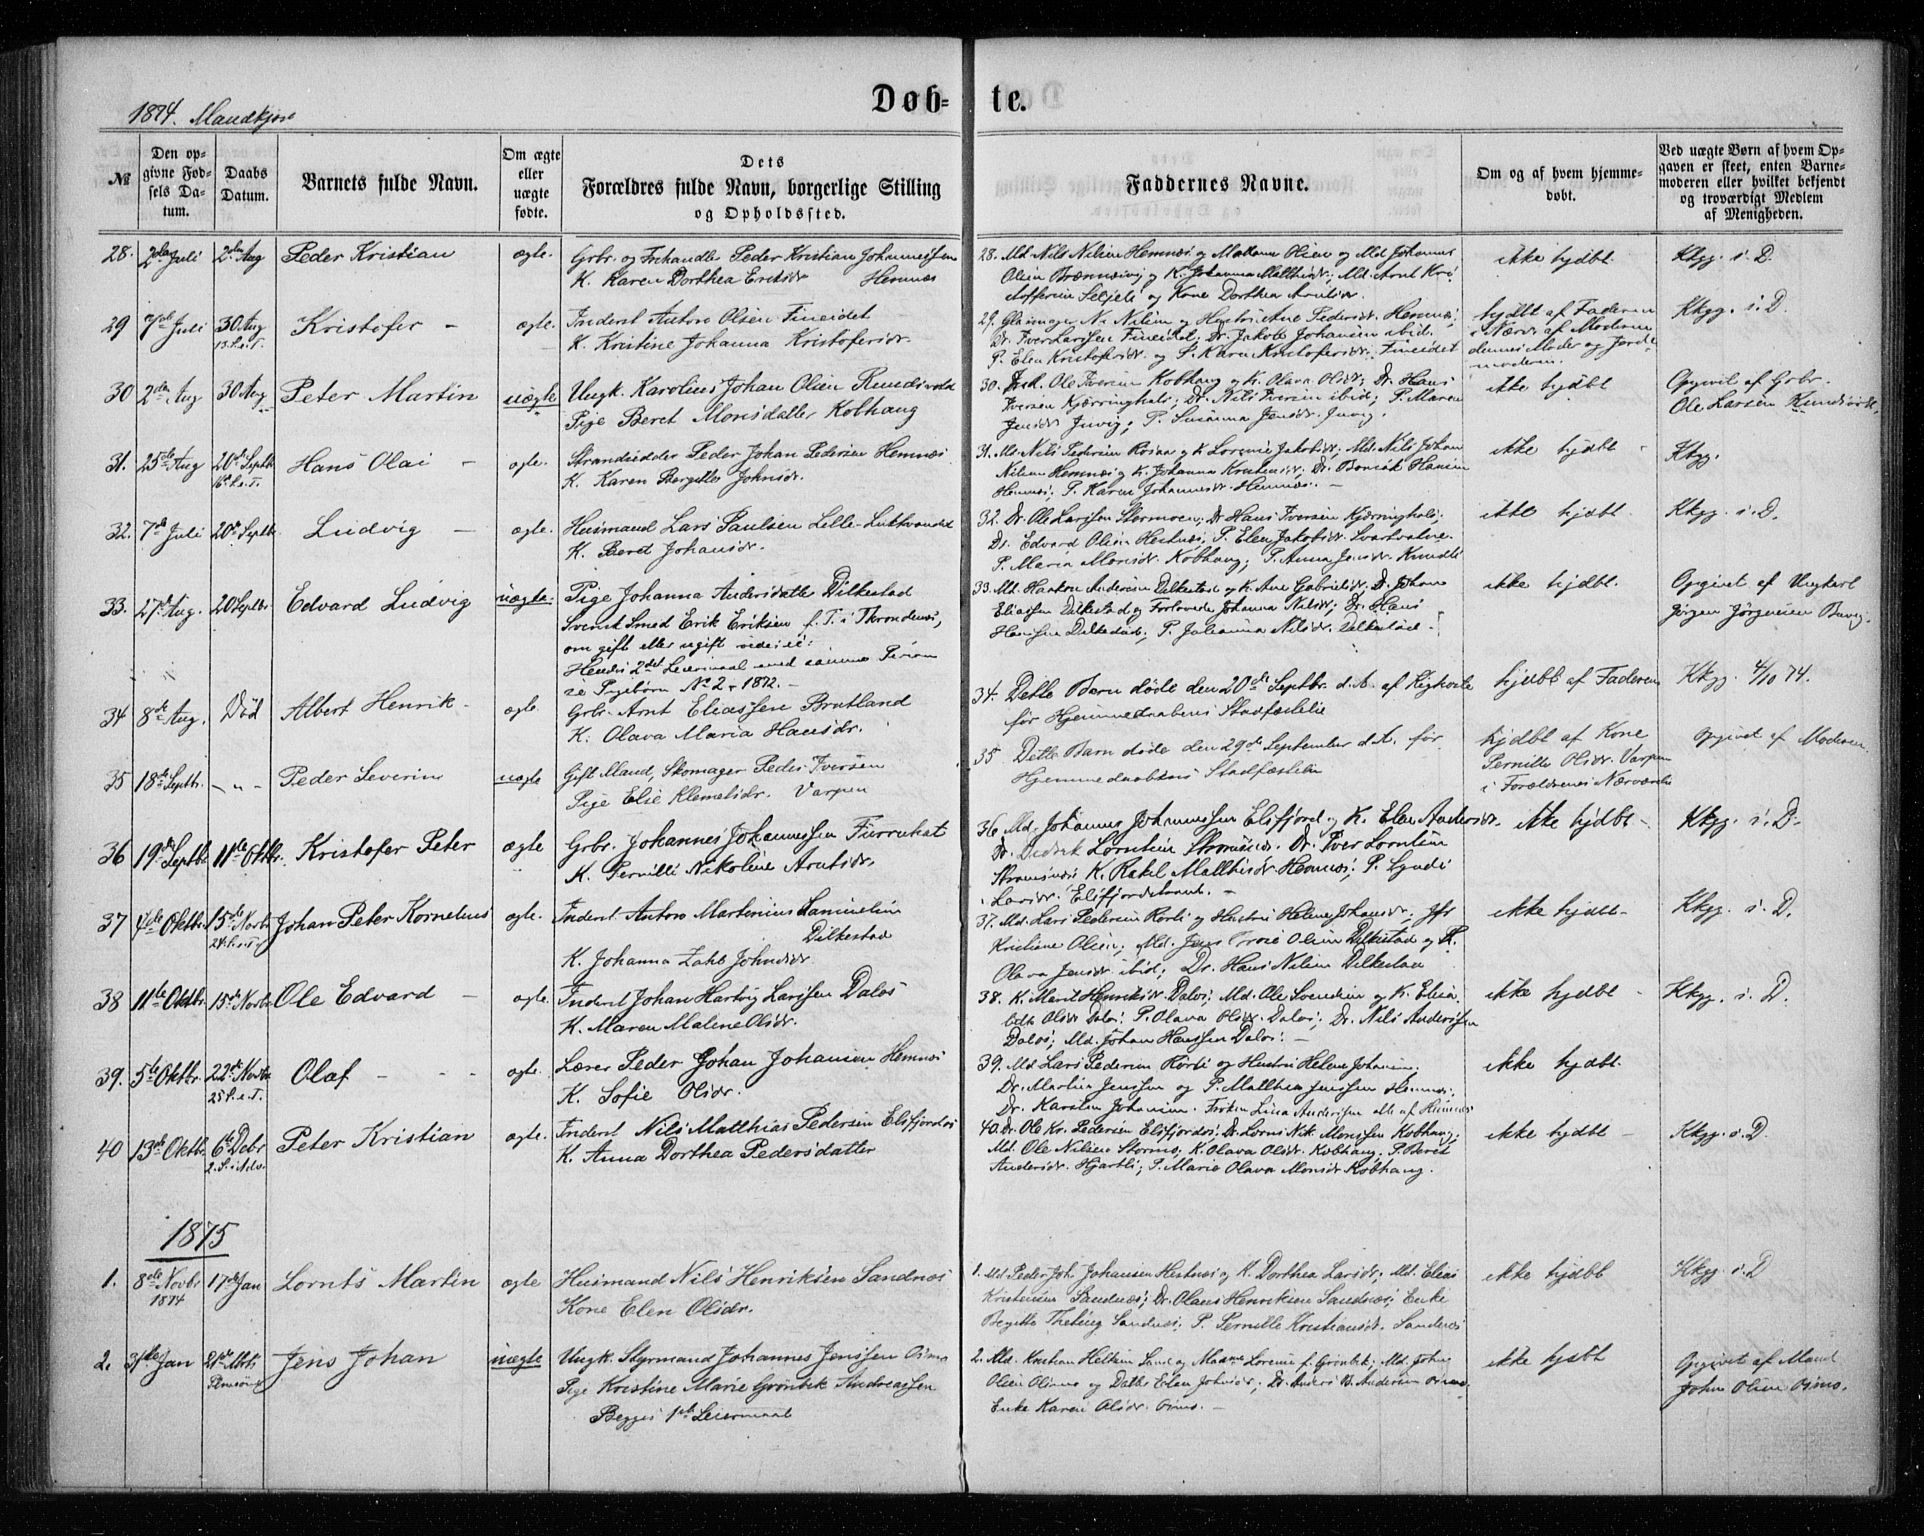 Døb- te.
1874. Mandkjøn
№
Den opgivne Fødsels Datum.
Daabs Datum.
Barnets fulde Navn.
Om ægte eller uægte fødte.
Dets Forældres fulde Navn, borgerlige Stilling og Opholdssted.
Faddernes Navne.
Om og af hvem hjemmedøbt.
Ved uægte Børn af hvem Opgaven er skeet, enten Barnemoderen eller hvilket bekjendt og troværdigt Medlem af Menigheden.
28. 2den Juli 2den Aug Peder Kristian ægte. Grbr. og Frihandler Peder Kristian Johannessen
K. Karen Dorthea Eriksdr Hemnæs
28. Md. Nils Nilsen Hemnæs og Madam Olsen og Md Johannes
Olsen og K. Johanna Matthisdr; Md. Arnt Kri
stoffersen Seljeli og Kone Dorthea Arntsdr.
ikke hjdbt. Kkgg. i. D.
29 7de Juli 30 Aug Kristofer - ægte. Inderst Anton Olsen Fineidet
K. Kristine Johanna Kristofersdr.
29. Glasmager N. Nilsen og Hustru Ane Pedersdr. Hemnæs;
Dr. Iver Larssen Fineidet; Dr. Jakob Johansen ibid.
P. Elen Kristofersdr. og P. Karen Kristofersdr. Fineidet
hjdbt af Faderen
i Nærv. af Moderen
dennes Moder og Jorde
moderen.
Kkgg. i. D.
30 2den Aug 30 Aug Peter Martin uægte Ungk. Karolius Johan Olsen
Pige Beret Monsdatter Kobhaug
30. Ole Iversen Kobhaug og K. Olava Olsdr; Dr. Hans
Iversen Kjærringhals; Dr. Nils Iversen ibid; P. Maren
Jensdr Juvig; P. Susanna Jensdr. Juvig.
ikke hjdbt Opgivet af Grbr.
Ole Larsen
31. 25de Aug 20de Septbr Hans Olai - ægte. Strandsidder Peder Johan Pedersen Hemnæs
K. Karen Bergitte Johnsdr.
31. Md. Nils Pedersen Rosaa og K. Lorense Jakobsdr; Md. Nils Johan
Nilsen Hemnæs og K. Johanna Kristensdr; Dr. Hansen
Hemnæs; P. Karen Johannesdr. Hemnæs. -
ikke hjdbt - Kkgg.
32. 7de Juli 20de Septbr Ludvig - ægte. Husmand Lars Paulsen Lille-Luktvandet
K. Beret Johansdr.
32. Dr. Ole Larssen Stormoen; Dr Hans Iversen Kjærringhals;
Dr. Edvard Olsen Hestnæs; P. Elen Jakobsdr.
P. Maria Monsdr. Kobhaug; P. Anna Jensdr.
ikke hjdbt. Kkgg. i. D.
33. 27de Aug. 20 Septbr Edvard Ludvig uægte. Pige Johanna Andersdatter Dilkestad
Svensk Smed Erik Eriksen f. T. i Throndenæs,
om gift eller ugift
Hendes 2det Leiermaal med samme Person
se Pigebørn No 2 - 1872. -
33. Md. Haakon Andersen Dilkestad og K. Ane Gabrielsdr; Dr. Johan
Eliassen Dilkestad og Forlovede Johanna Nilsdr; Dr. Hans
Hanssen Dilkestad; P. Julianna Nilsdr. Dilkestad.
ikke hjdbt. Opgivet af Ungkarl
Jørgen Jørgensen
34 8de Aug. Død Albert Henrik - ægte Grbr. Arnt Eliassen Brutland
K. Olava Maria Hansdr.
34. Dette Barn døde den 20de Septbr. d. A. af Kighoste
før Hjemmedaabens Stadfæstelse
hjdbt af Faderen Kkgg. 4/10 74.
35 18de Septbr. - " - Peder Severin uægte Gift Mand, Skomager Peder Iversen
Pige Else Klemetsdr. Varpen
35 Dette Barn døde den 29de September d. A. før
Hjemmedaabens Stadfæstelse
hjdbt af Kone
Pernille Olsdr. Varpen
i Forældrenes Nærværelse
Opgivet af Moderen.
36 19de Septbr 11te Oktbr. Kristofer Peter ægte Grbr. Johannes Johannessen Furruhat
K. Pernille Nikoline Arntsdr.
36 Md. Johannes Johannessen Elsfjord og K. Elen Andersdr.
Dr. Didrik Lorntsen Strømsnæs. Dr. Iver Lorntsen
Strømsnæs; K. Rakel Matthisdr Hemnæs; P.
Larsdr. -
ikke hjdbt - Kkgg. i. D.
37 4de Oktbr. 15de Novbr Johan Peter Kornelius ægte. Inderst Anton Martinius Samuelsen
Dilkestad
K. Johanna Zahl Johnsdr.
37. Md. Lars Pedersen Korli og Hustru Helene Johansdr; Jfr
Kristiane Olsen; Md. Jens Olsen Dilkestad og K.
Olava Jensdr ibid; Dr. Hans Nilsen Dilkestad
ikke hjdbt. Kkgg. i. D.
38 11te Oktbr. 15de Novbr Ole Edvard - ægte. Inderst Johan Hartvig Larssen Dalos
K. Maren Malene Olsdr.
38. K. Merit Henriksdr. Dalos; Md. Ole Svendsen og K. Elisa
beth Olsdr Dalos; P. Olava Olsdr. Dalos; Dr. Nils Anderssen
Dalos; Md. Johan Hanssen Dalos. -
ikke hjdbt - Kkgg. i. D.
39. 5te Oktbr 22de Novbr Olaf - - - ægte. Lærer Peder Johan Johansen Hemnæs
25 S. e. T.
K. Sofie Olsdr.
39. Md Lars Pedersen Korli og Hustru Helene Johansen;
Dr. Martin Jenssen og P. Matthea Jenssen Hemnæs;
Dr. Karsten Johansen. Frøken Lina Anderssen alle af Hemnæs
ikke hjdbt.
40 13de Oktbr 6te Debr Peter Kristian ægte. Inderst Nils Matthias Pedersen Elsfjordos
2. S. i Adv.
K. Anna Dorthea Pedersdatter
40. Dr. Ole Kr. Pedersen Elsfjordos; Dr. Lorns Nik. Monssen Kobhaug;
Md. Ole Nilsen Stormo; K. Olava Olsdr. Kobhaug; P. Beret
Andersdr. Hjartli; P. Marie Olava Monsdr Kobhaug.
ikke hjdbt - Kkgg. i. D.
1875
1. 8de Novbr 1874 17de Jan Lornts Martin ægte Husmand Nils Henriksen Sandnæs
Kone Elen Olsdr.
1. Md. Peder Joh. Johansen Hestnæs og K. Dorthea Larsdr; Md. Elias
Kristensen Sandnæs; Dr. Olaus Henriksen Sandnæs; Enke
Begitte Sandnæs; P. Pernille Kristiansdr. Sandnæs
ikke hjdbt Kkgg. i. D
2. 31te Jan 21de Marts Jens Johan uægte Ungk. Styrmand Johannes Jenssen
Pige Kristine Marie Grønbek Andreassen
Begges 1ste Leiermaal
2. Md. Kristian og Madame Lorense f. Grønbek; Md. John
Olsen og Datter Elen Johnsdr; Dr. Anders B. Andersen
Enke Karen Olsdr. -
ikke hjdbt Opgivet af Mand
John Olsen